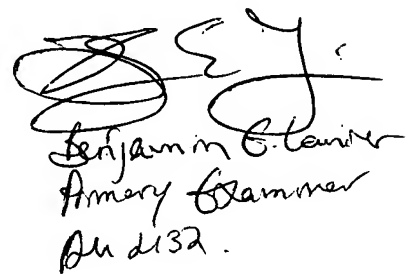 Benjamin E. Lanier
Primary Examiner
AU 2132.